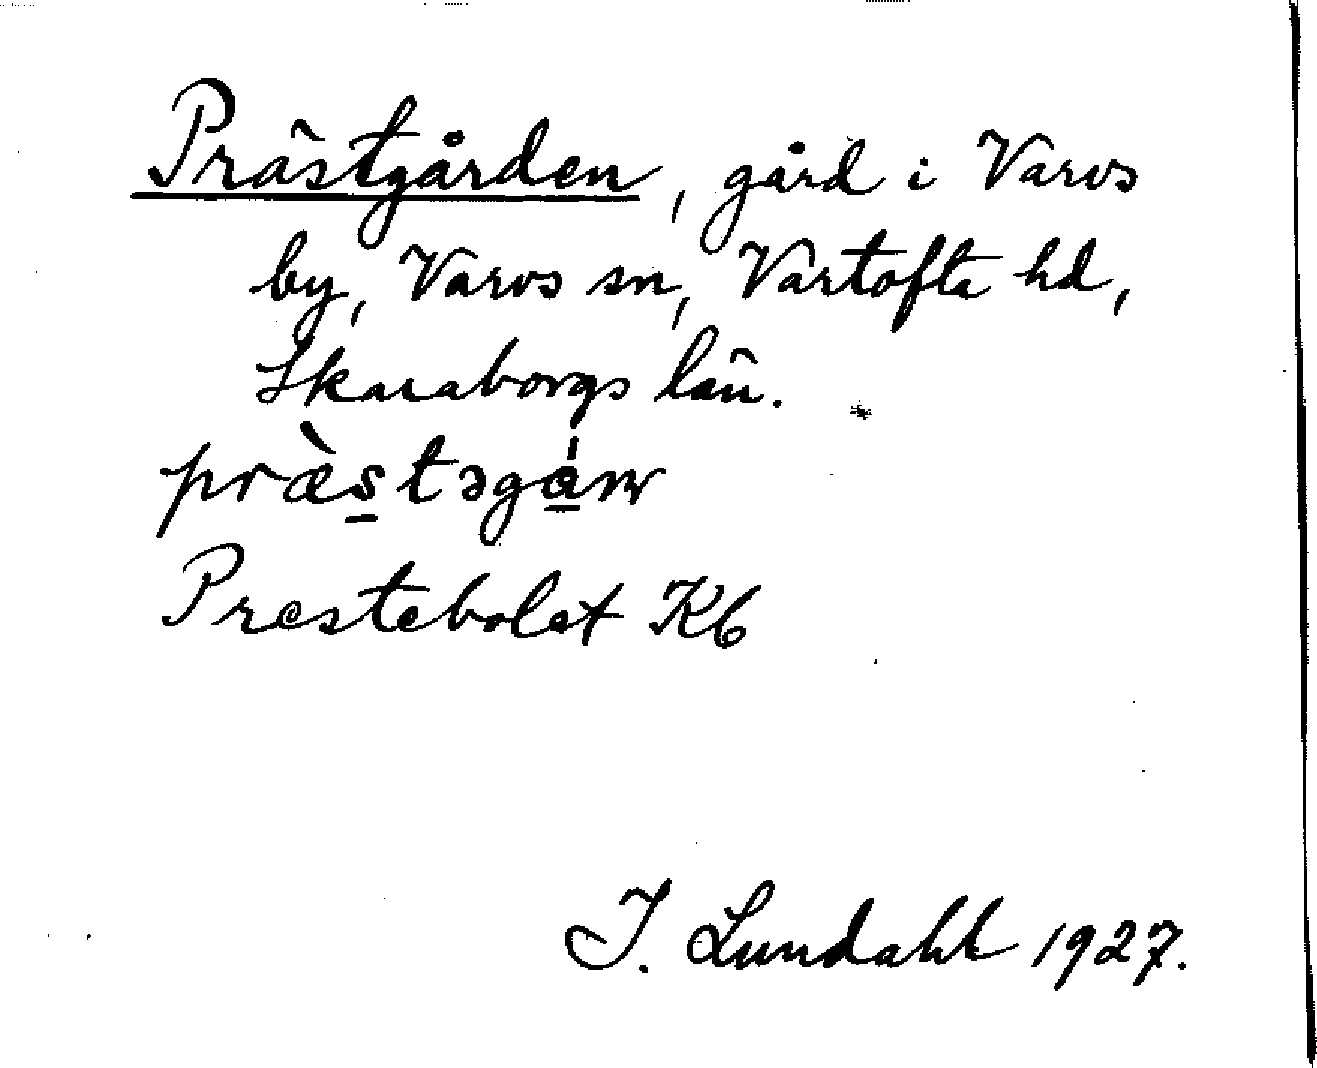 Prästgården, gård i Varvs
by, Varvs sn, Vartofta hd,
Skaraborgs län.
præ̀stəgán
Prestebolet Kb
I. Lundahl 1927.